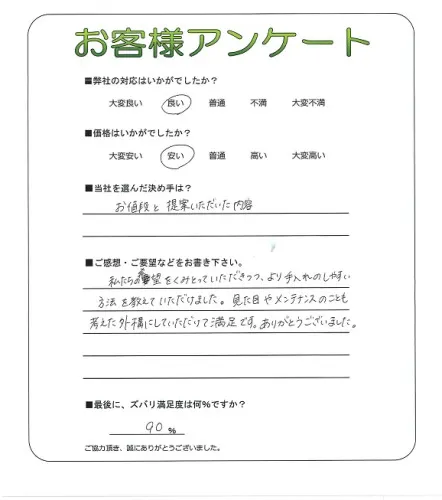 お客様アンケート
■弊社の対応はいかがでしたか？
大変良い 良い 普通 不満 大変不満
■価格はいかがでしたか？
大変安い 安い 普通 高い 大変高い
■当社を選んだ決め手は？
お値段と提案いただいた内容
■ご感想・ご要望などをお書き下さい。
私たちの要望をくみとっていただきつつ、より手入れのしやすい
方法を教えていただけました。見た目やメンテナンスのことも
考えた外構にしていただけて満足です。ありがとうございました。
■最後に、ズバリ満足度は何%ですか？
90 %
ご協力頂き、誠にありがとうございました。